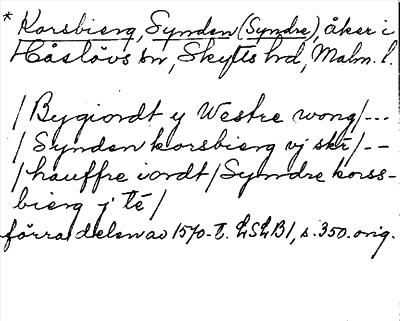 * Korsbierg, Synden (Syndre), åker i
Håslövs sn, Skytts hd, Malm. l.
/Bygiordt y Westre wong/---
/Synden korsbierg vj skr̄/--
/hauffre iordt/Syndre korss-
bierg j tē/
förra delen av 1570-t. LSLB1, s. 350. orig.